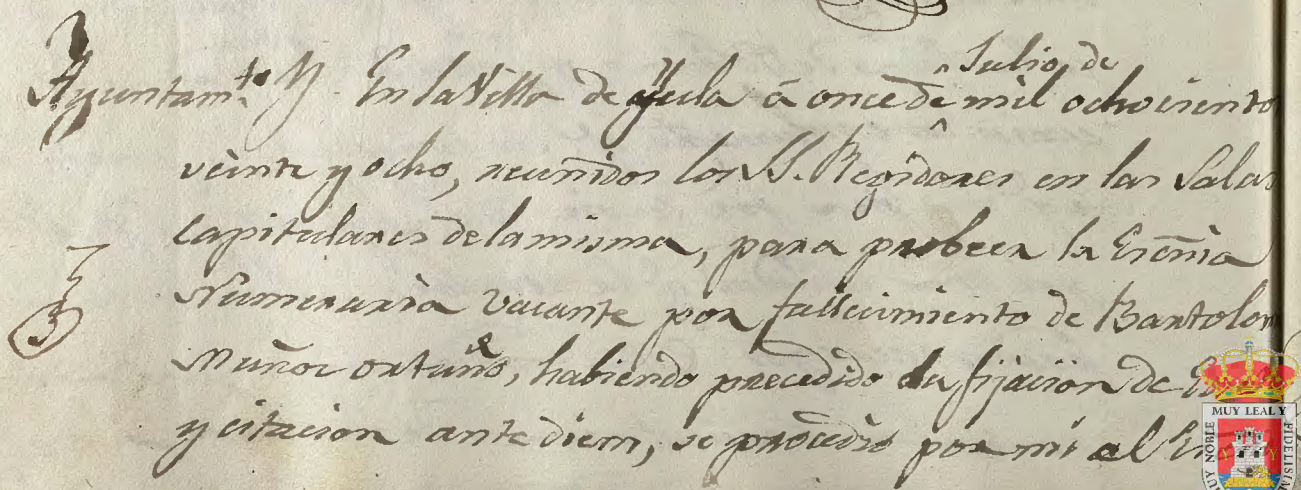 Julio de
Ayuntam.to En la Villa de Yecla á once de mil ochocientos
veinte y ocho, reunidos los SS. Regidores en las Salas
Capitulares de la misma, para probeer la Escñia
Numeraria vacante por fallecimiento de Bartolom
Muñoz ortuño, habiendo precedido la fijacion de
y citacion ante diem, se procedió por mi el
3
MUY LEAL Y
MUY NOBLE
FIDELISIMA